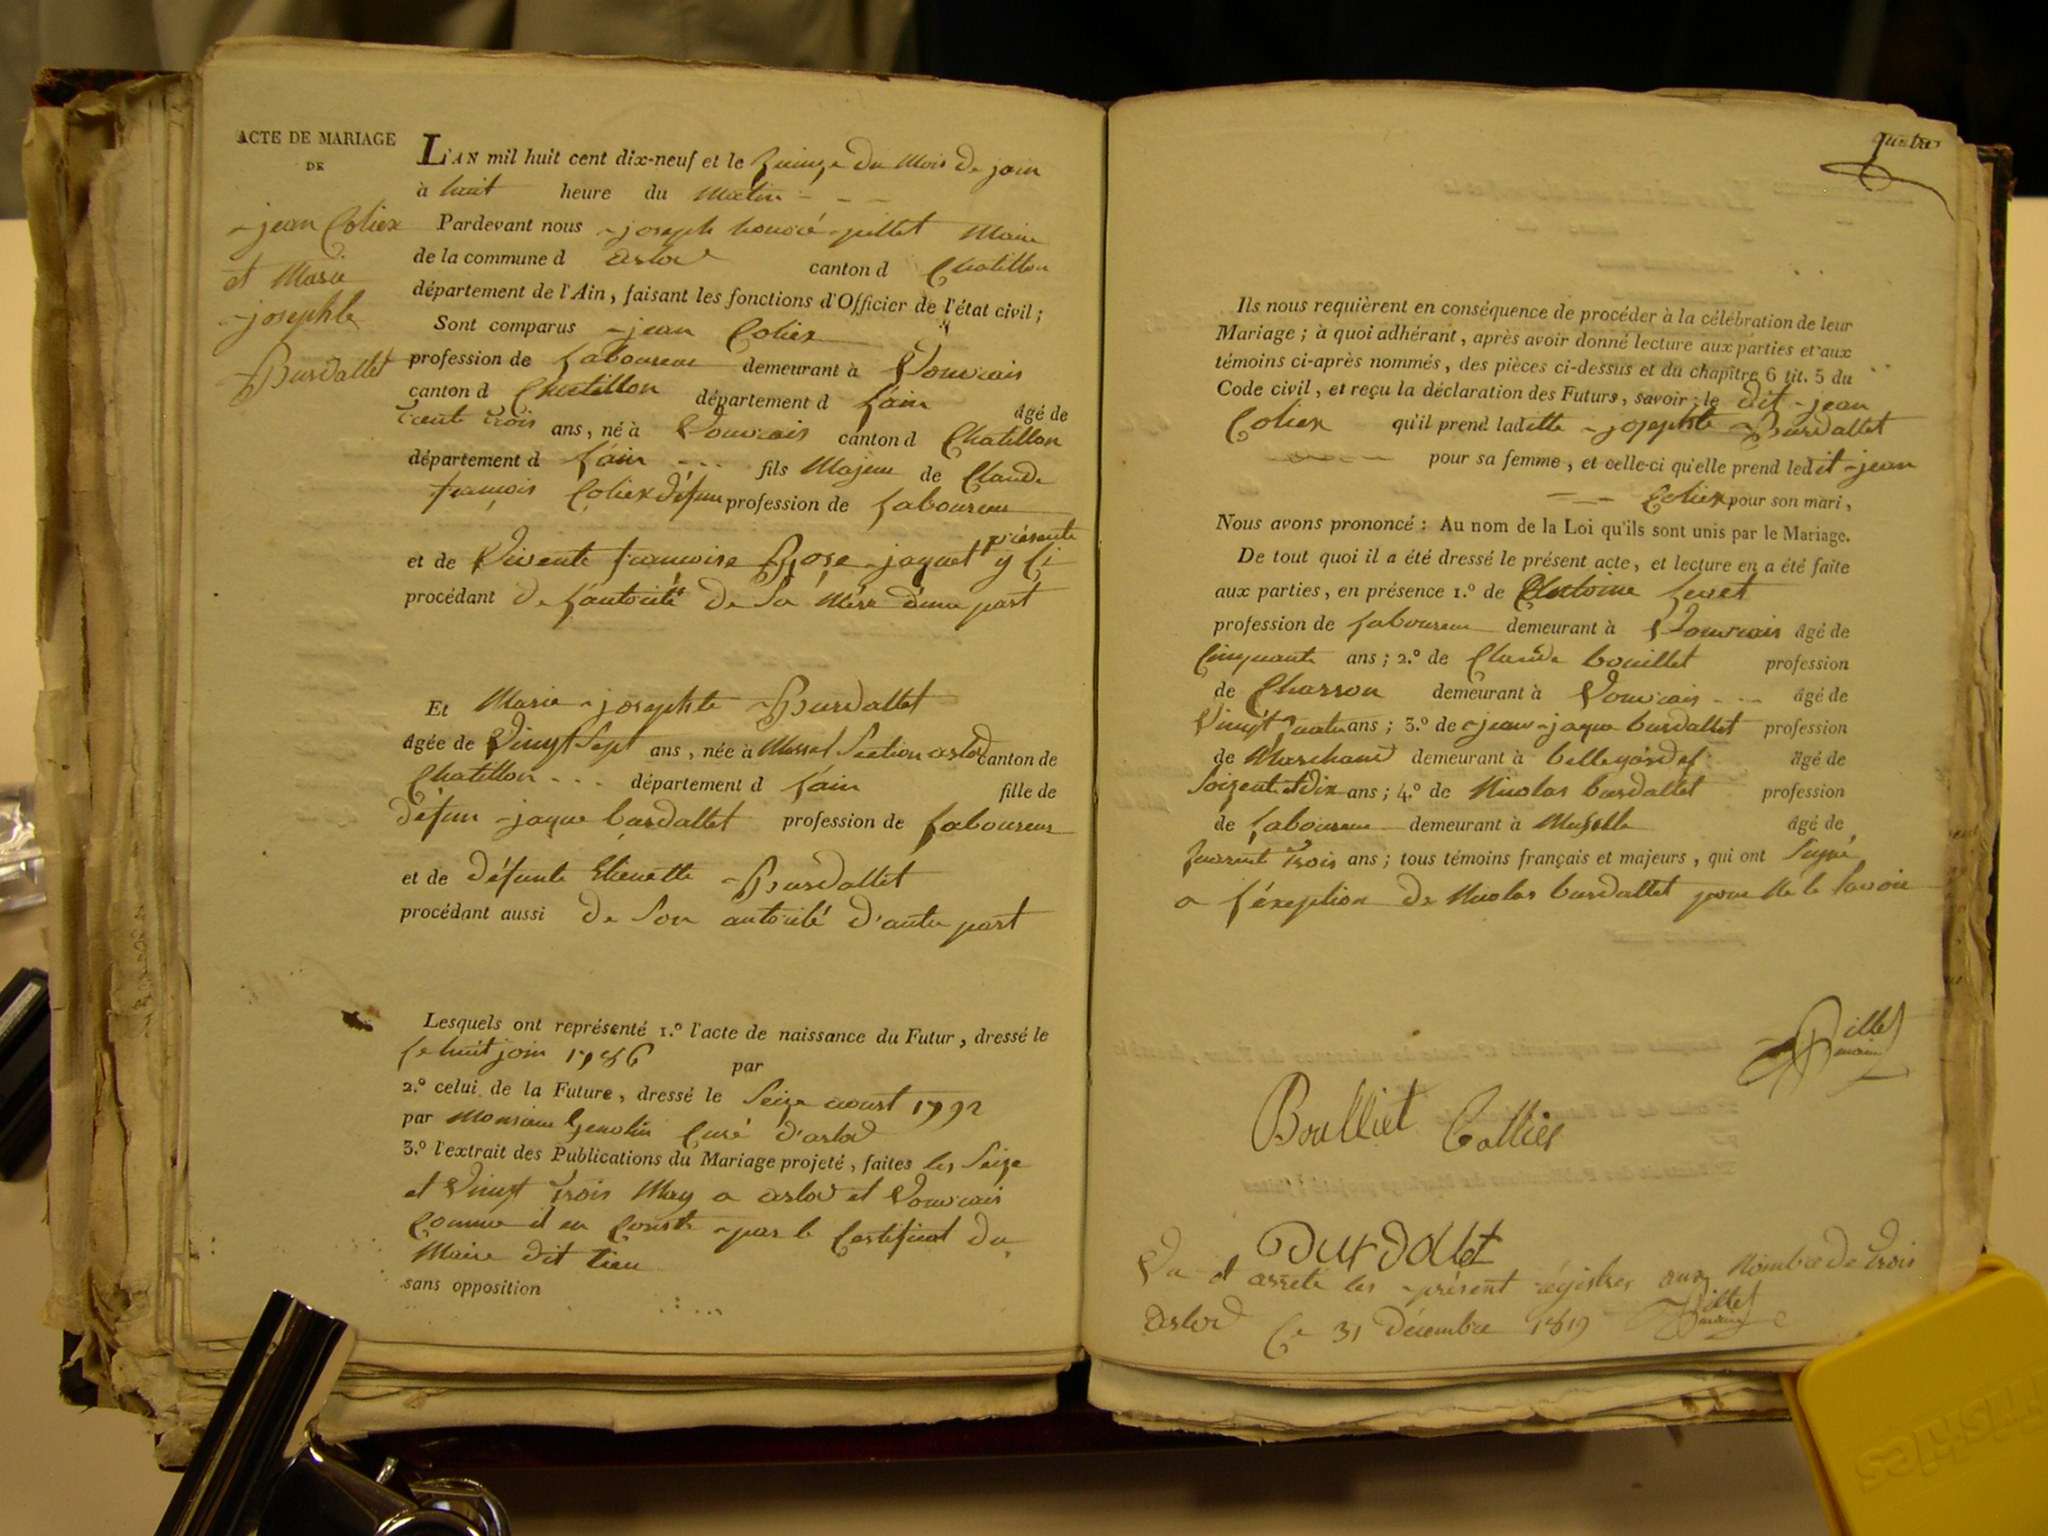 ACTE DE MARIAGE
DE
jean Coliex
et Marie
josephte
Burdallet
L'AN mil huit cent dix-neuf et le Quinze du Mois de join
à huit heure du Matin - - -
Pardevant nous joseph honoré pillet Maire
de la commune d arlod canton d Chatillon
département de l'Ain, faisant les fonctions d'Officier de l'état civil;
Sont comparus jean Coliex
profession de Laboureur demeurant à Vouvrais
canton d Chatillon département d Lain âgé de
Trente Trois ans, né à Vouvrais canton d Chatillon
département d Lain - - - fils Majeur de Claude
françois Coliex défun profession de Laboureur
présente
et de Vivente françoise Rose jaquet y Ci
procédant de Lautorité de Sa Mère d'une part
Et Marie josephte Burdallet
âgée de Vingt Sept ans, née à Mussel Section arlod canton de
Chatillon - - - département d Lain fille de
défun jaque burdallet profession de Laboureur
et de défunte Etienette Burdallet
procédant aussi de Son autorité d'autre part
Lesquels ont représenté 1.º l'acte de naissance du Futur, dressé le
Le huit join 1786 par
2.º celui de la Future, dressé le Seize aoust 1792
par Monsieur Genolin Curé d'arlod
3.º l'extrait des Publications du Mariage projeté, faites les Seize
et Vingt Trois May a arlod et Vouvrais
Comme il en Conste par le Certificat du
Maire dit lieu
sans opposition
quatre
Ils nous requièrent en conséquence de procéder à la célébration de leur
Mariage; à quoi adhérant, après avoir donné lecture aux parties et aux
témoins ci-après nommés, des pièces ci-dessus et du chapitre 6 tit. 5 du
Code civil, et reçu la déclaration des Futurs, savoir: le dit jean
Coliex qu'il prend ladite josephte Burdallet
pour sa femme, et celle-ci qu'elle prend ledit jean
Coliex pour son mari,
Nous avons prononcé: Au nom de la Loi qu'ils sont unis par le Mariage.
De tout quoi il a été dressé le présent acte, et lecture en a été faite
aux parties, en présence 1.º de Antoine
profession de Laboureur demeurant à Vouvrais âgé de
Cinquante ans; 2.º de Claude bouillet profession
de Charron demeurant à Vouvrais - - - âgé de
Vingt quatre ans; 3.º de jean jaque burdallet profession
de Marchand demeurant à bellegarde âgé de
Soizentetdix ans; 4.º de Nicolas burdallet profession
de Laboureur demeurant à Musselle âgé de
quarente Trois ans; tous témoins français et majeurs, qui ont Signé
a L'éxeption de Nicolas burdallet pour Ne le Savoir
Pillet
maire
Boulliet Collier
Burdallet
Vu et arrété les présent régistres aux Nombre de Trois
arlod Ce 31 Décembre 1819 Pillet
maire